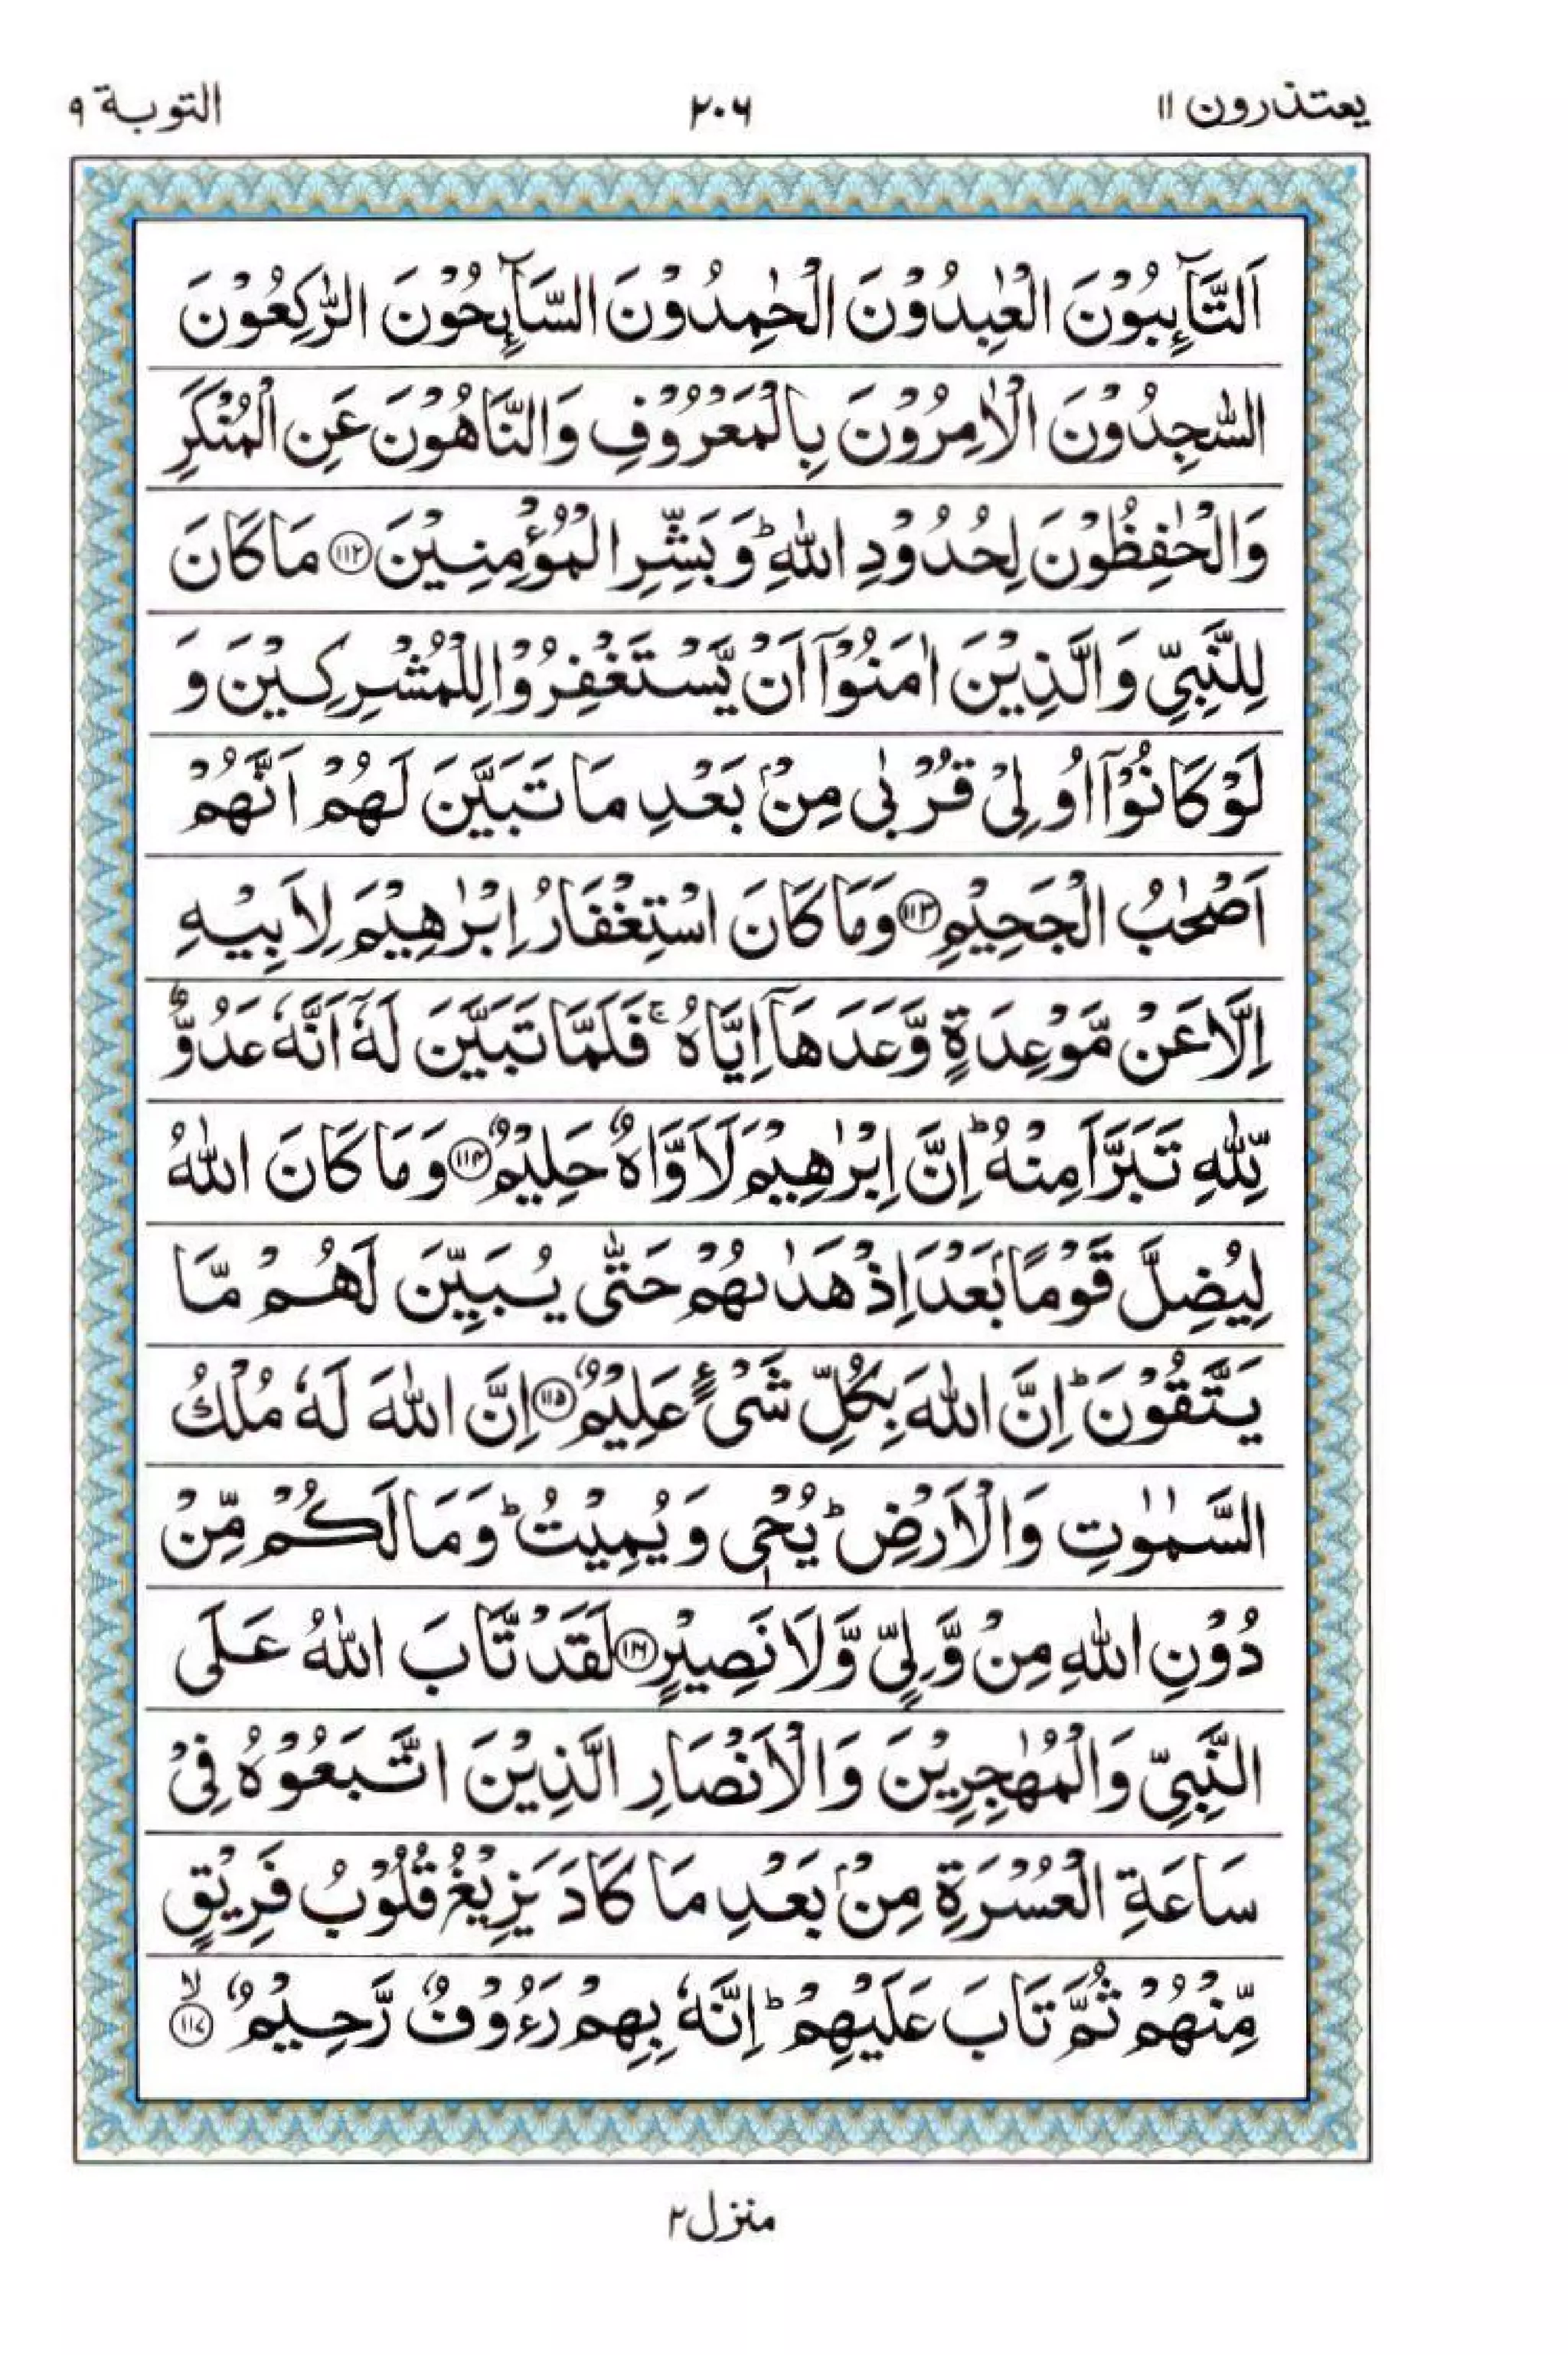 يعتذرون ١١ ٢٠٦ التوبة ٩
اَلتَّآئِبُوْنَ الْعٰبِدُوْنَ الْحٰمِدُوْنَ السَّآئِحُوْنَ الرّٰكِعُوْنَ
السّٰجِدُوْنَ الْاٰمِرُوْنَ بِالْمَعْرُوْفِ وَالنَّاهُوْنَ عَنِ الْمُنْكَرِ
وَالْحٰفِظُوْنَ لِحُدُوْدِ اللّٰهِ ؕ وَبَشِّرِ الْمُؤْمِنِيْنَ ﴿۱۱۲﴾ مَا كَانَ
لِلنَّبِيِّ وَالَّذِيْنَ اٰمَنُوْۤا اَنْ يَّسْتَغْفِرُوْا لِلْمُشْرِكِيْنَ وَ
لَوْ كَانُوْۤا اُولِيْ قُرْبٰى مِنْۢ بَعْدِ مَا تَبَيَّنَ لَهُمْ اَنَّهُمْ
اَصْحٰبُ الْجَحِيْمِ ﴿۱۱۳﴾ وَمَا كَانَ اسْتِغْفَارُ اِبْرٰهِيْمَ لِاَبِيْهِ
اِلَّا عَنْ مَّوْعِدَةٍ وَّعَدَهَاۤ اِيَّاهُ ۚ فَلَمَّا تَبَيَّنَ لَهٗۤ اَنَّهٗ عَدُوٌّ
لِّلّٰهِ تَبَرَّاَ مِنْهُ ؕ اِنَّ اِبْرٰهِيْمَ لَاَوَّاهٌ حَلِيْمٌ ﴿۱۱۴﴾ وَمَا كَانَ اللّٰهُ
لِيُضِلَّ قَوْمًۢا بَعْدَ اِذْ هَدٰىهُمْ حَتّٰى يُبَيِّنَ لَهُمْ مَّا
يَتَّقُوْنَ ؕ اِنَّ اللّٰهَ بِكُلِّ شَيْءٍ عَلِيْمٌ ﴿۱۱۵﴾ اِنَّ اللّٰهَ لَهٗ مُلْكُ
السَّمٰوٰتِ وَالْاَرْضِ ؕ يُحْيٖ وَيُمِيْتُ ؕ وَمَا لَكُمْ مِّنْ
دُوْنِ اللّٰهِ مِنْ وَّلِيٍّ وَّلَا نَصِيْرٍ ﴿۱۱۶﴾ لَقَدْ تَّابَ اللّٰهُ عَلَى
النَّبِيِّ وَالْمُهٰجِرِيْنَ وَالْاَنْصَارِ الَّذِيْنَ اتَّبَعُوْهُ فِيْ
سَاعَةِ الْعُسْرَةِ مِنْۢ بَعْدِ مَا كَادَ يَزِيْغُ قُلُوْبُ فَرِيْقٍ
مِّنْهُمْ ثُمَّ تَابَ عَلَيْهِمْ ؕ اِنَّهٗ بِهِمْ رَءُوْفٌ رَّحِيْمٌ ۙ﴿۱۱۷﴾
منزل ٢